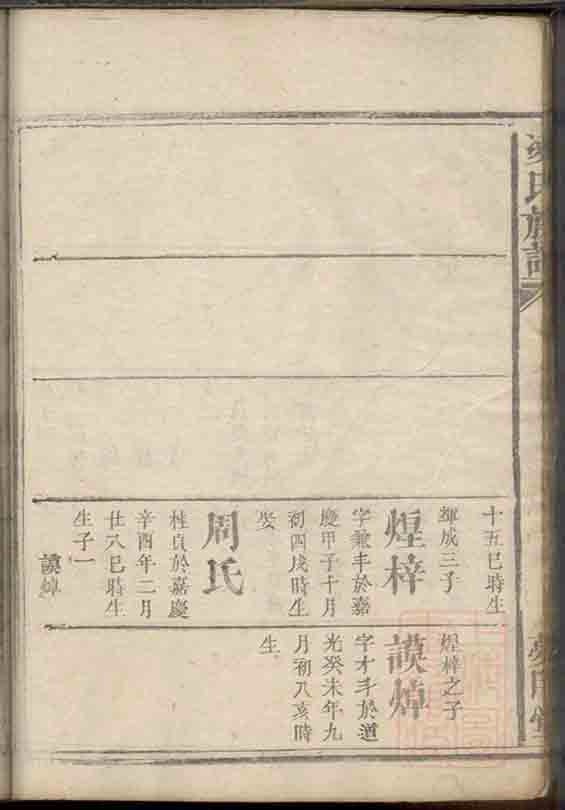 氏族譜
十五巳時生
輝成三子
煌梓
字兼丰於嘉
慶甲子十月
初四戌時生
娶
周氏
桂貞於嘉慶
辛酉年二月
廿八巳時生
生子一
謨焯
煌梓之子
謨焯
字才丰於道
光癸未年九
月初八亥時
生